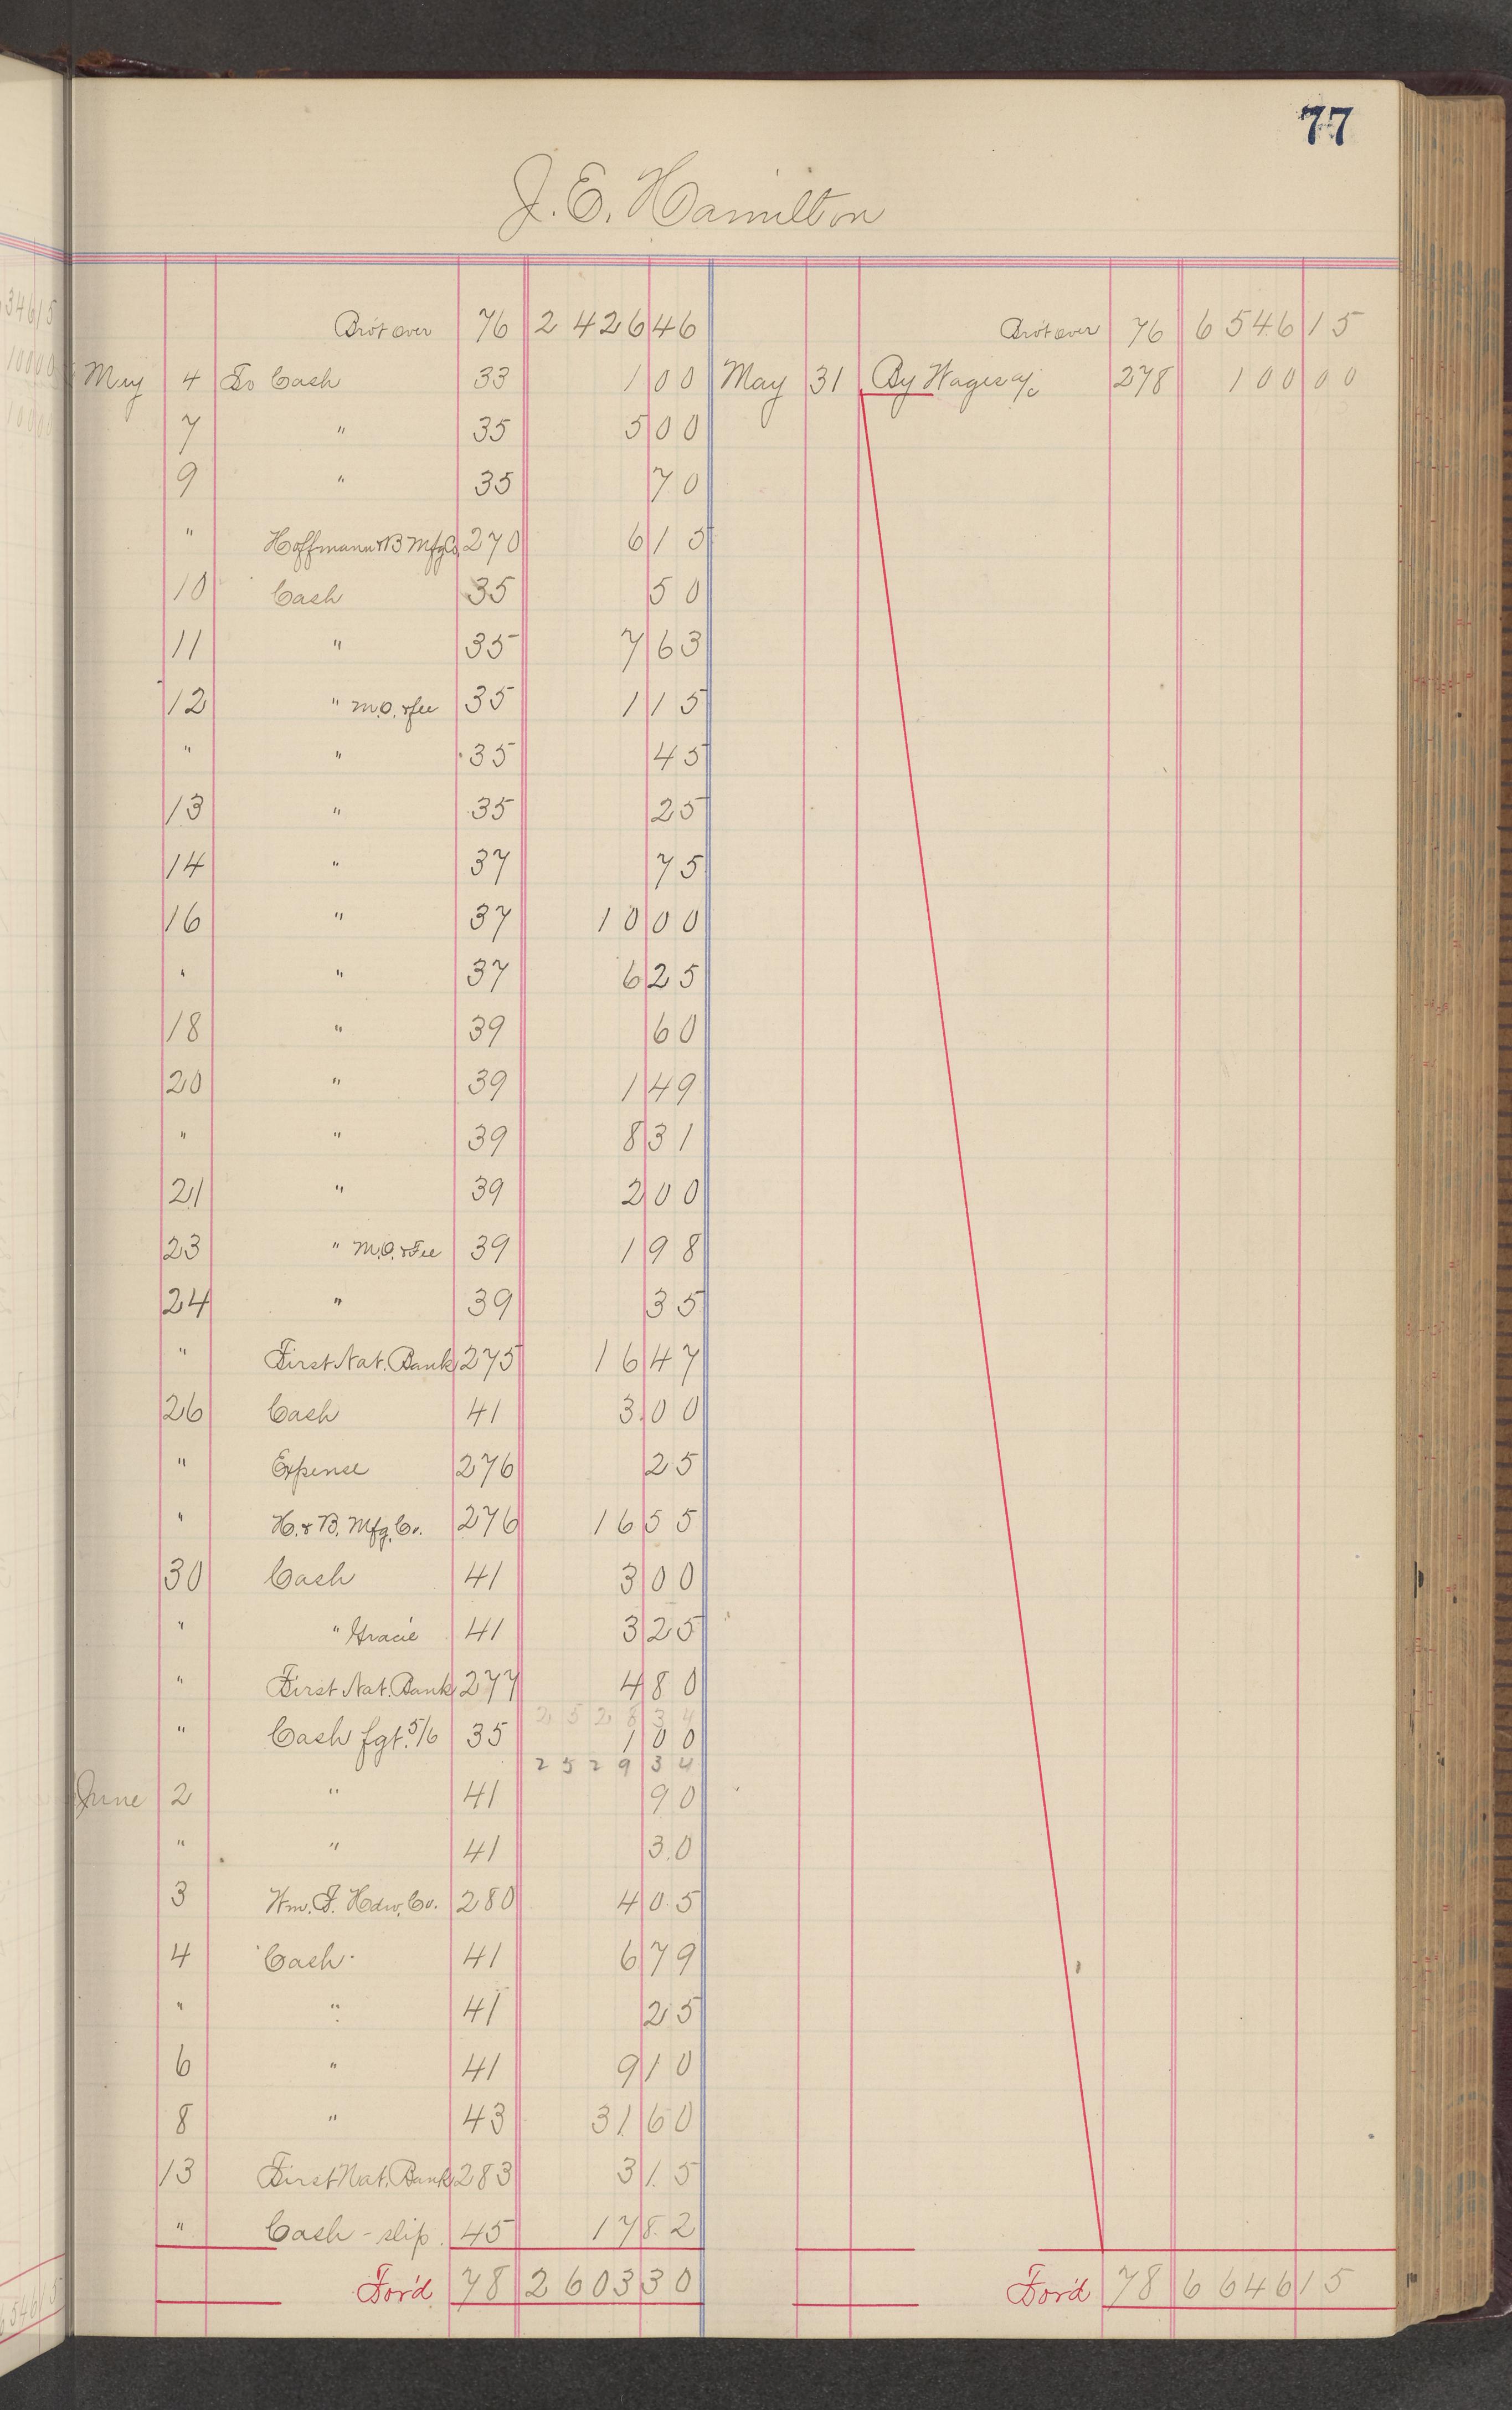 77
J. E. Hamilton
Bro't over 76 2 426 46 Bro't over 76 6 546 15
May 4 To Cash 33 1 00 May 31 By Wages a/c 278 100 00
7 " 35 5 00
9 " 35 70
" Hoffmann & B Mfg Co. 270 6 15
10 Cash 35 50
11 " 35 7 63
12 " M.O. & fee 35 1 15
" " 35 45
13 " 35 25
14 " 37 75
16 " 37 10 00
" " 37 6 25
18 " 39 60
20 " 39 1 49
" " 39 8 31
21 " 39 2 00
23 " M.O. & Fee 39 1 98
24 " 39 35
" First Nat. Bank 275 16 47
26 Cash 41 3 00
" Expense 276 25
" H. & B. Mfg. Co. 276 16 55
30 Cash 41 3 00
" " Gracie 41 3 25
" First Nat. Bank 277 4 80
2 5 2 8 3 4
" Cash fgt. 5/6 35 1 00
2 5 2 9 3 4
June 2 " 41 90
" " 41 30
3 Wm. F. Hdw. Co. 280 4 05
4 Cash 41 6 79
" " 41 25
6 " 41 9 10
8 " 43 31 60
13 First Nat. Bank 283 3 15
" Cash - slip 45 17 82
For'd 78 2 603 30 For'd 78 6 646 15